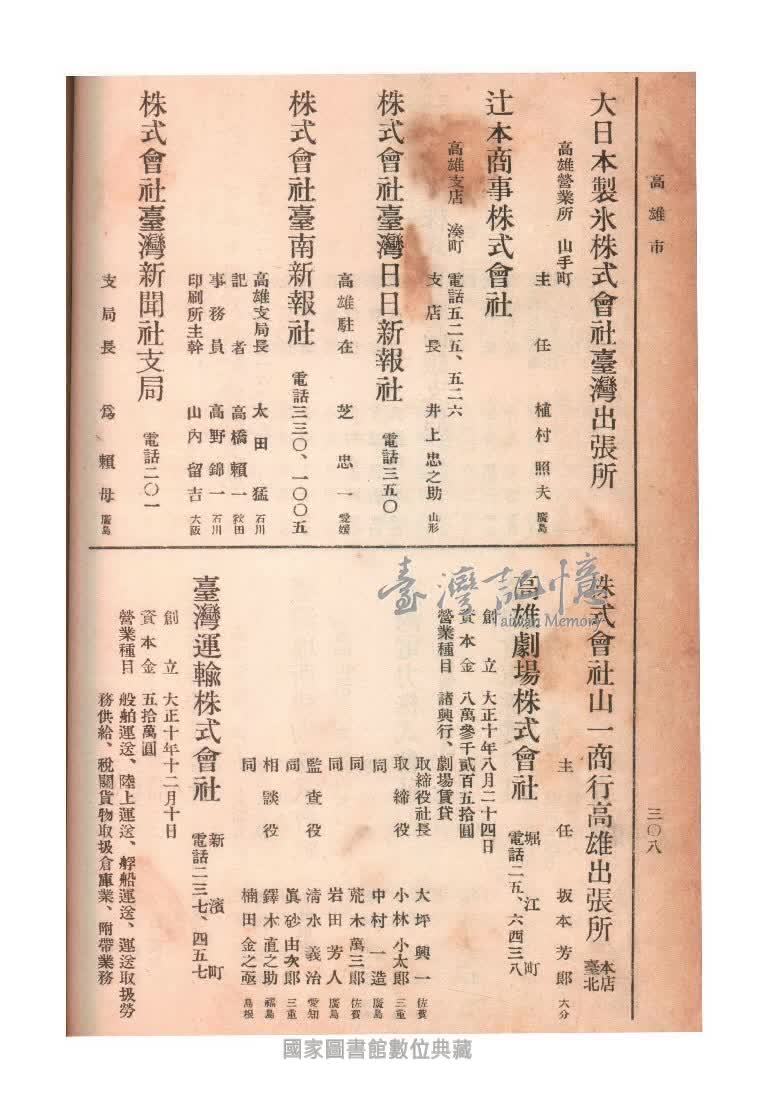 高雄市
三〇八
大日本製氷株式會社臺灣出張所
高雄營業所 山手町
主任 植村照夫 廣島
辻本商事株式會社
高雄支店 湊町 電話五二五、五二六
支店長 井上忠之助 山形
株式會社臺灣日日新報社 電話三五〇
高雄駐在 芝忠一 愛媛
株式會社臺南新報社 電話三三〇、一〇〇五
高雄支局長 太田猛 石川
記者 高橋賴一 秋田
事務員 高野錦一 石川
印刷所主幹 山內留吉 大阪
株式會社臺灣新聞社支局 電話二〇一
支局長 爲賴母 廣島
株式會社山一商行高雄出張所 本店臺北
主任 坂本芳郞 大分
高雄劇場株式會社 堀江町 電話二五、六四三八
創立 大正十年八月二十四日
資本金 八萬參千貳百五拾圓
營業種目 諸興行、劇場賃貸
取締役社長 大坪興一 佐賀
取締役 小林小太郞 三重
同 中村一造 廣島
同 荒木萬三郞 佐賀
同 岩田芳人 廣島
監查役 清水義治 愛知
同 眞砂由次郞 三重
相談役 鐸木直之助 福島
同 楠田金之亟 島根
臺灣運輸株式會社 新濱町 電話二三七、四五七
創立 大正十年十二月十日
資本金 五拾萬圓
營業種目 船舶運送、陸上運送、艀船運送、運送取扱勞
務供給、稅關貨物取扱倉庫業、附帶業務
臺灣記憶
Taiwan Memory
國家圖書館數位典藏